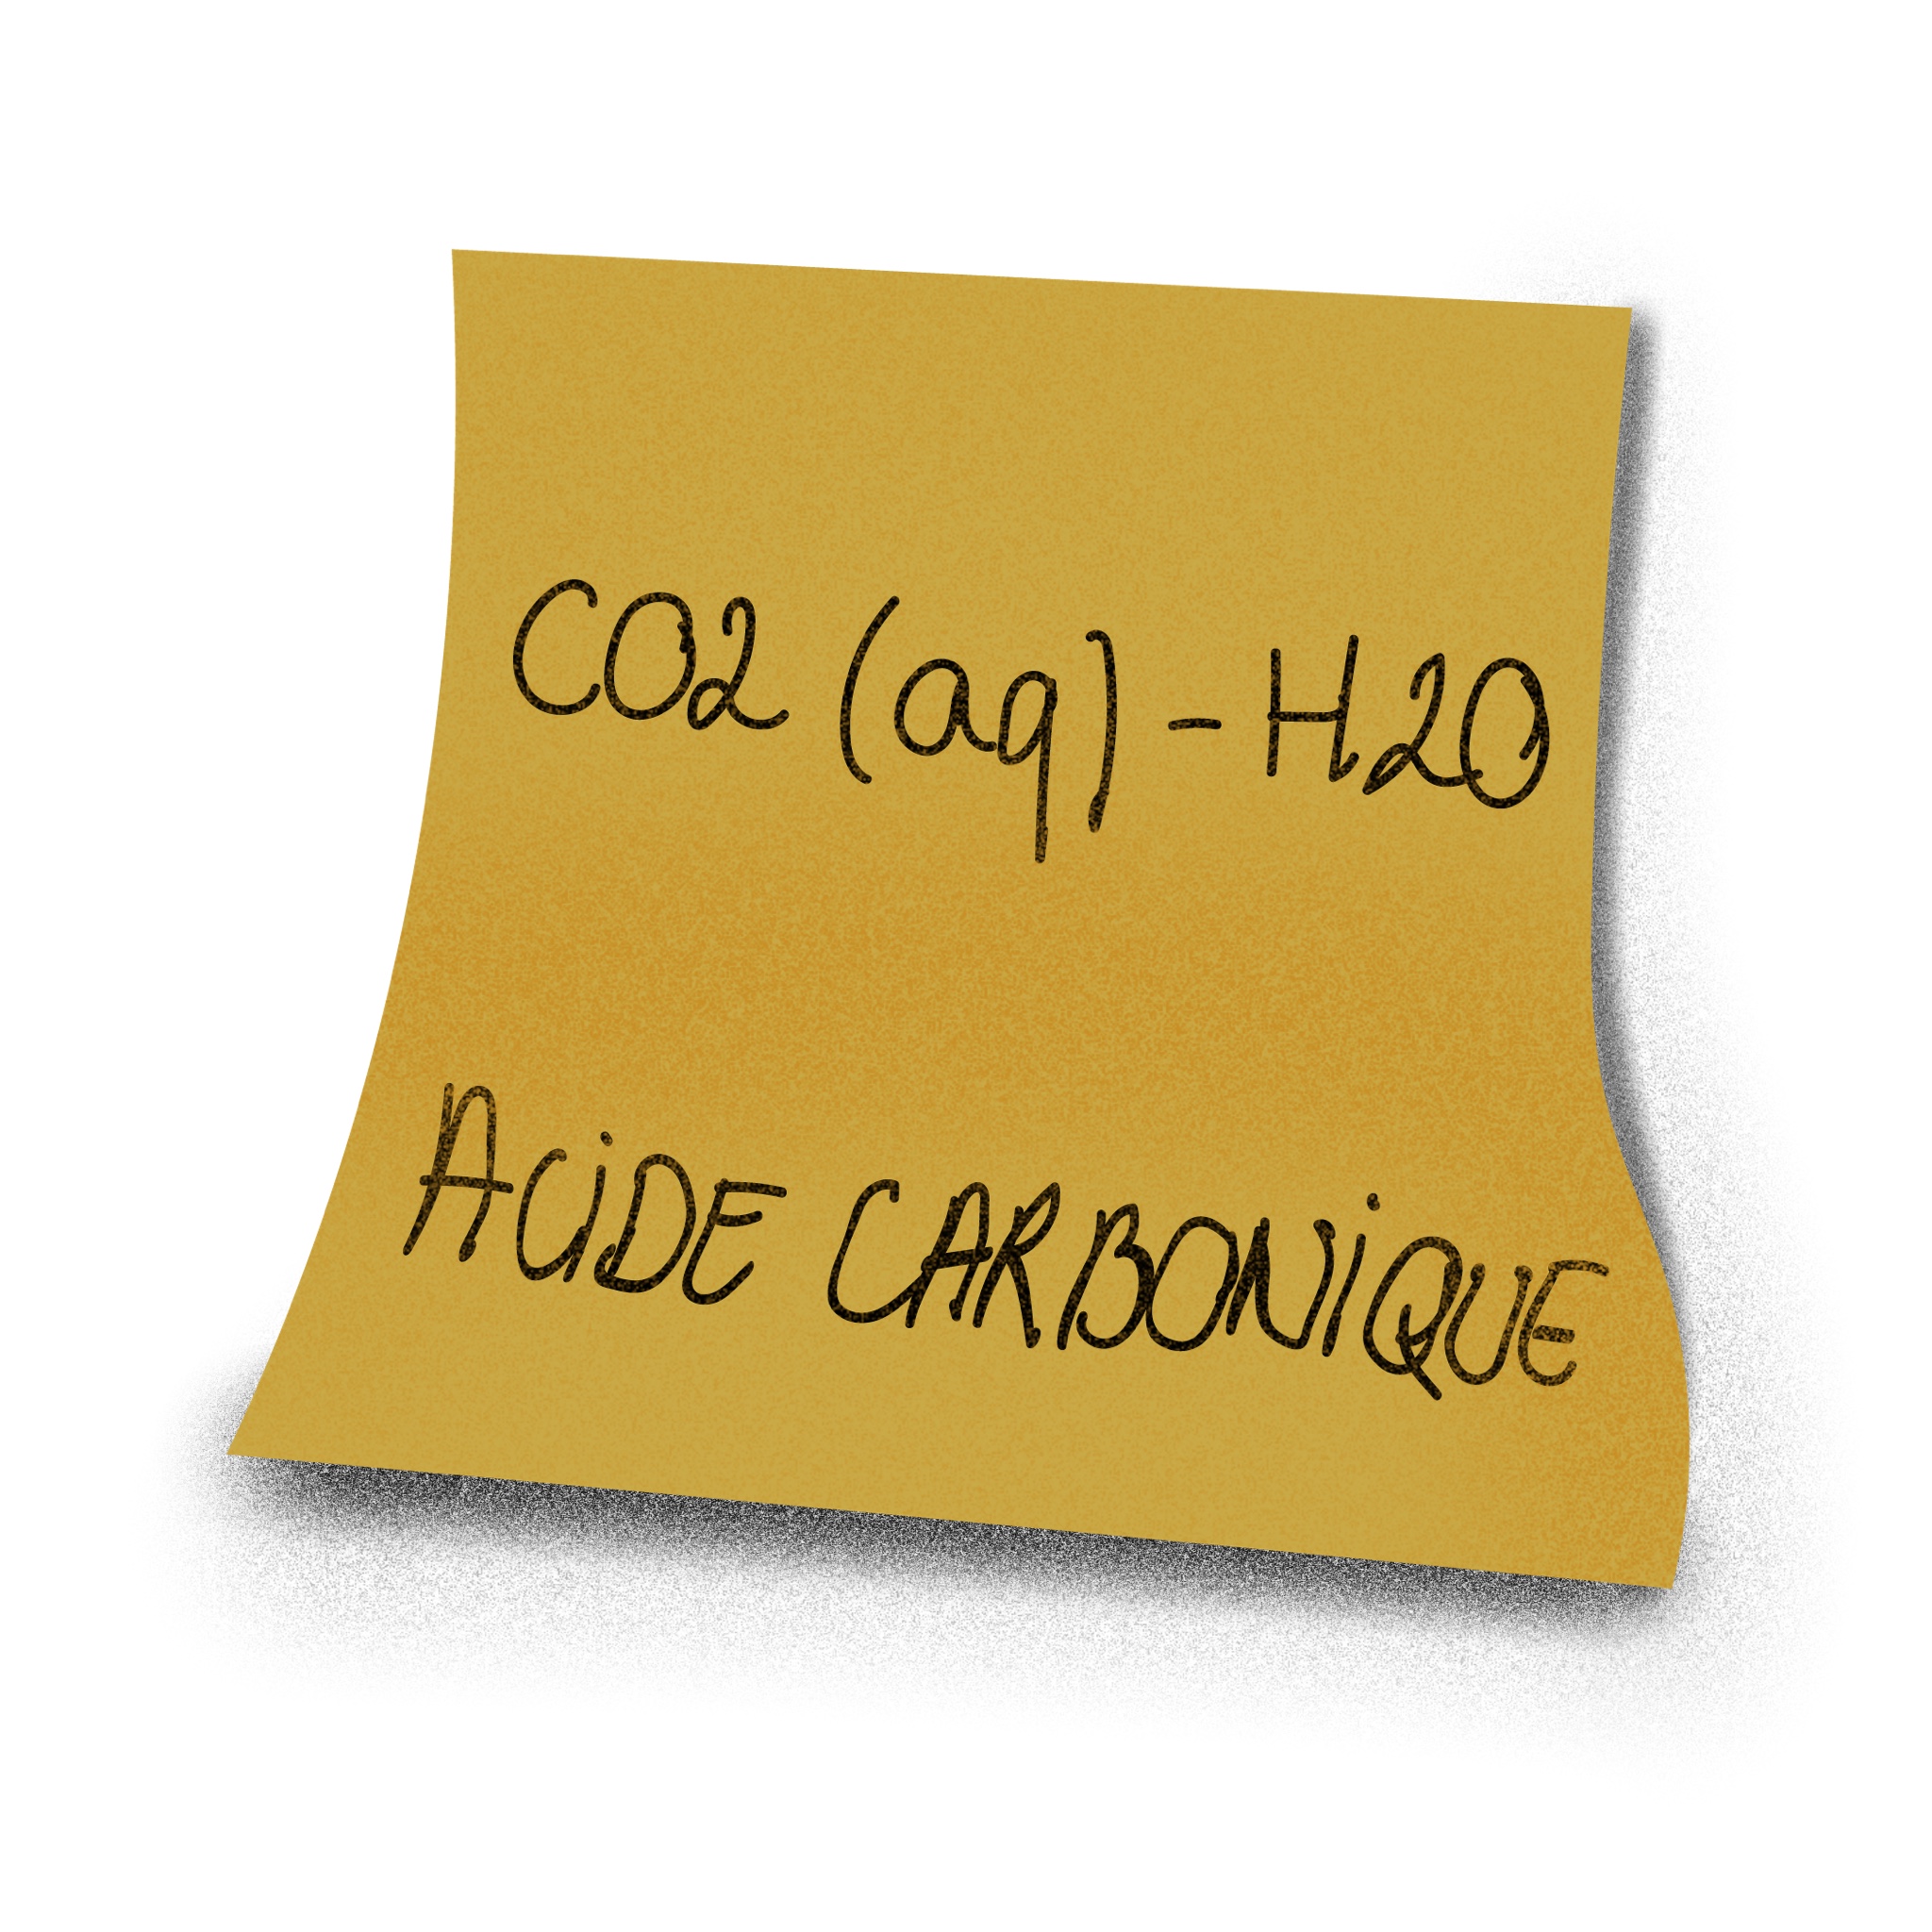 CO2 (aq) - H2O
ACIDE CARBONIQUE